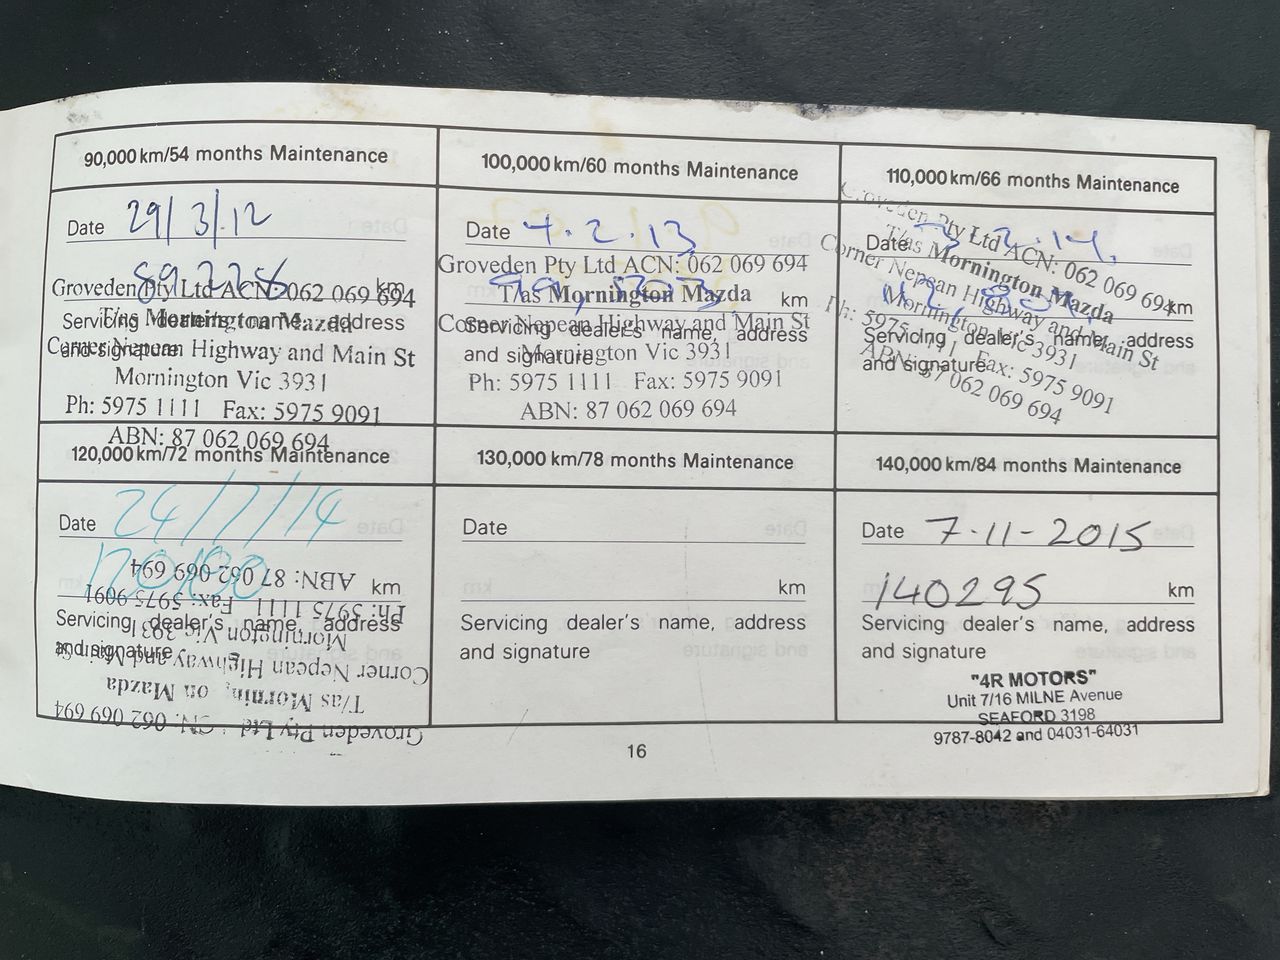 90,000 km/54 months Maintenance
Date 29/3/12
89 228 km
Groveden Pty Ltd ACN: 062 069 694
Servicing dealer's name, address
and signature
T/as Mornington Mazda
Corner Nepean Highway and Main St
Mornington Vic 3931
Ph: 5975 1111 Fax: 5975 9091
ABN: 87 062 069 694
100,000 km/60 months Maintenance
Date 4.2.13
km
Groveden Pty Ltd ACN: 062 069 694
T/as Mornington Mazda
Servicing dealer's name, address
and signature
Corner Nepean Highway and Main St
Mornington Vic 3931
Ph: 5975 1111 Fax: 5975 9091
ABN: 87 062 069 694
110,000 km/66 months Maintenance
Date 2.14
km
Servicing dealer's name, address
and signature
Groveden Pty Ltd ACN: 062 069 694
T/as Mornington Mazda
Corner Nepean Highway and Main St
Mornington Vic 3931
Ph: 5975 1111 Fax: 5975 9091
ABN: 87 062 069 694
120,000 km/72 months Maintenance
Date 24/7/14
120100 km
Servicing dealer's name, address
and signature
Groveden Pty Ltd 062 069 694
T/as Mornin on Mazda
Corner Nepean Highway and Main St
Mornington Vic 3931
Ph: 5975 1111 Fax: 5975 9091
ABN: 87 062 069 694
130,000 km/78 months Maintenance
Date
km
Servicing dealer's name, address
and signature
140,000 km/84 months Maintenance
Date 7-11-2015
140295 km
Servicing dealer's name, address
and signature
"4R MOTORS"
Unit 7/16 MILNE Avenue
SEAFORD 3198
9787-8042 and 04031-64031
16